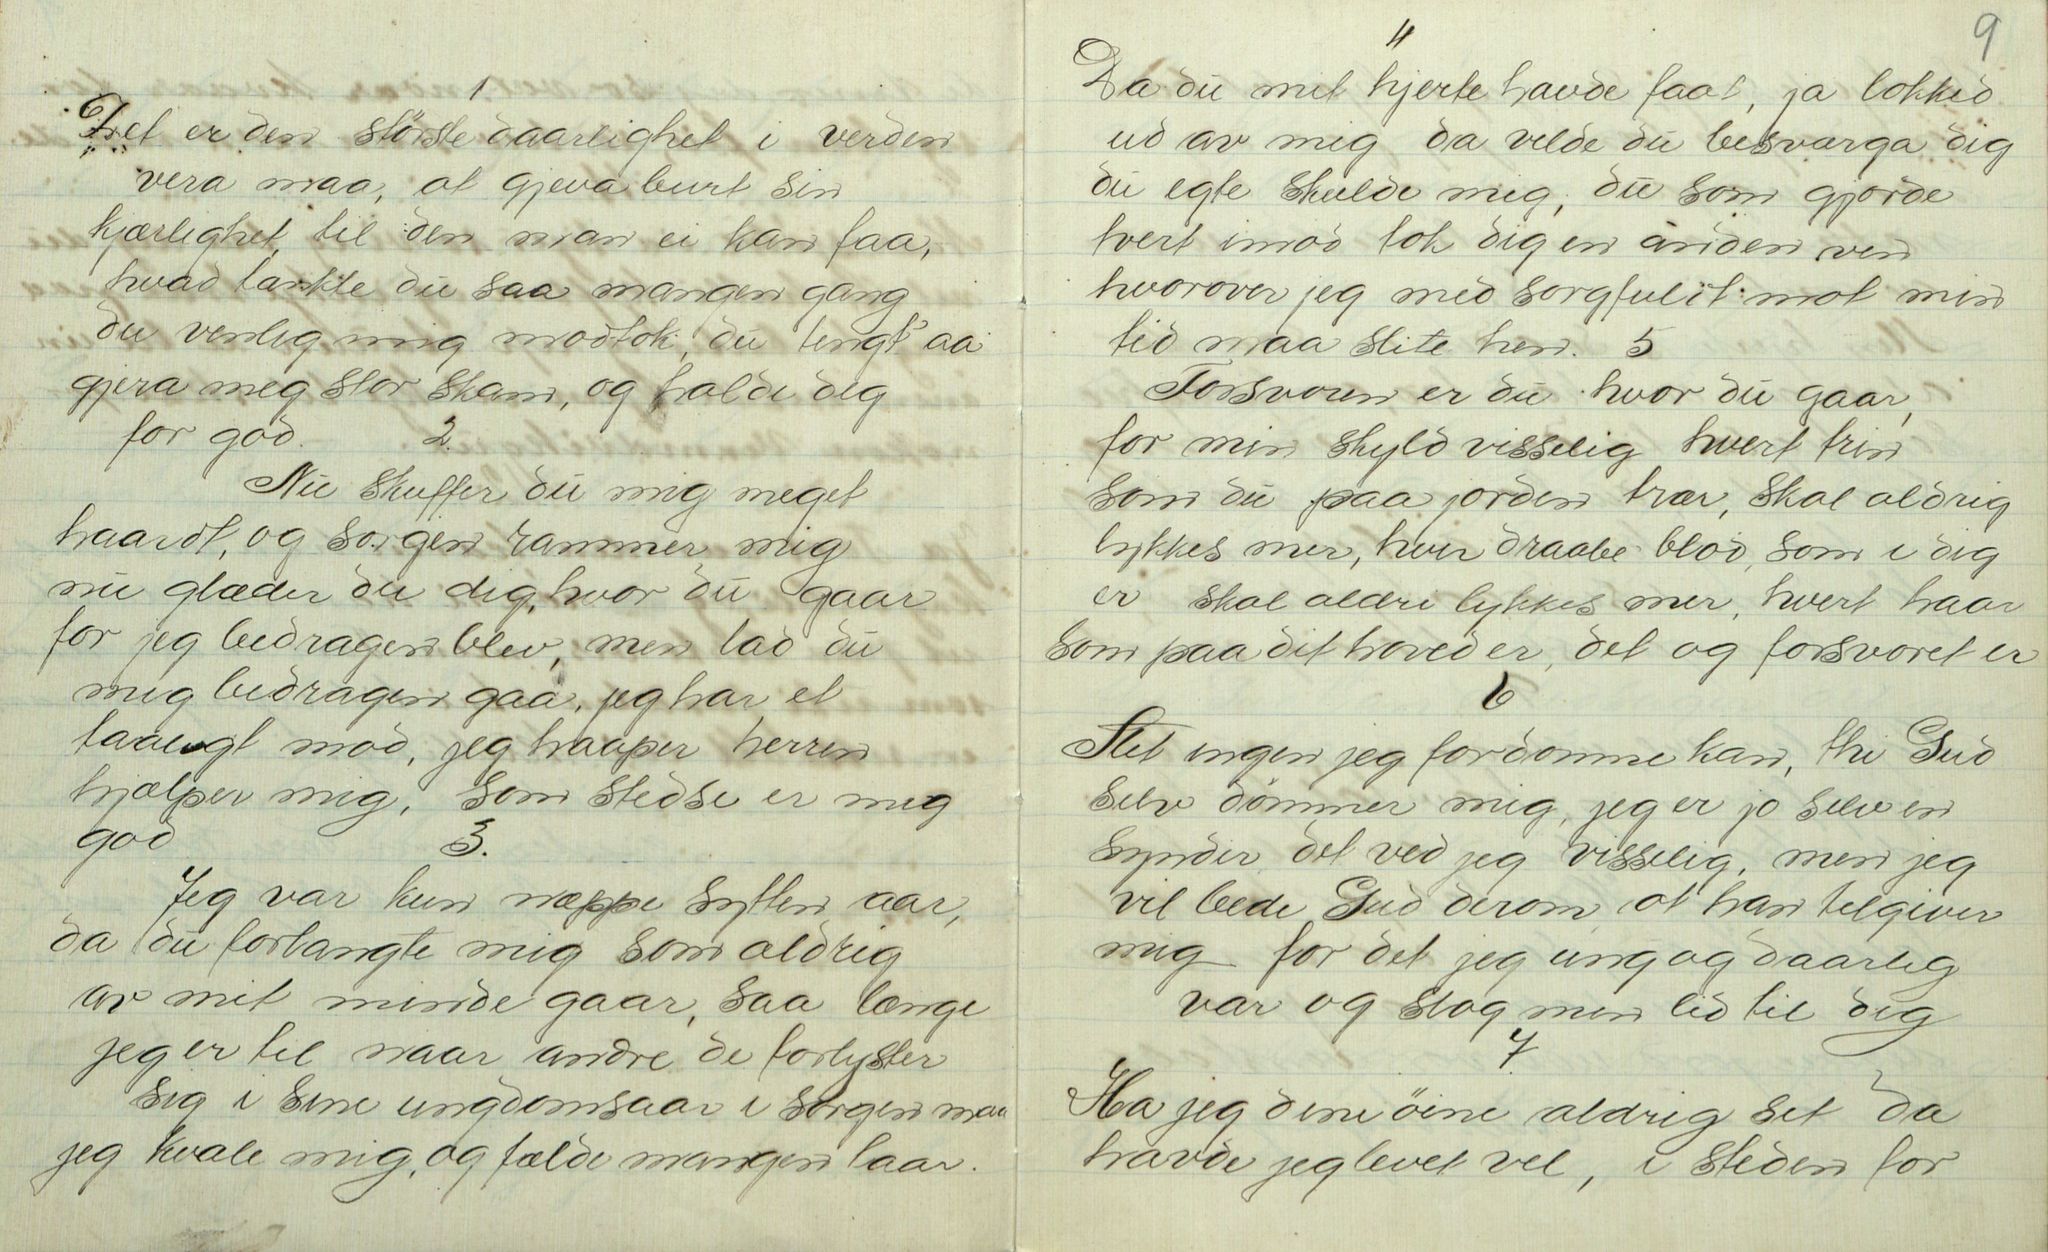 1
Det er den störste daarlighet i verden
vera maa, at gjeva burt sin
kjærlighet, til den man ei kan faa,
hvad tænkte du saa mangen gang
du venlig mig modtok, du tengt' aa
gjera meg stor skam, og halde deg
for god. 2.
Nu skuffer du mig meget
haardt, og sorgen rammer mig
nu glæder du dig, hvor du gaar
for jeg bedragen blev, men lad du
mig bedragen gaa, jeg har et
taalugt mod, jeg haaper herren
hjælper mig, som stedse er mig
god 3.
Jeg var kun næppe sytten aar,
da du forlangte mig som aldrig
av mit minde gaar, saa længe
jeg er til naar andre de forlyster
sig i sine ungdomsaar i sorgen maa
jeg kvale mig, og fælde mangen taar.
9
4
Da du mit hjerte havde faat, ja lokked
ud av mig da vilde du besværga dig
du egte skulde mig, du som gjorde
tvert imod tok dig en anden ven
hvorover jeg med sorgfuldt mot min
tid maa slite hen. 5
Forsvoren er du hvor du gaar,
for min skyld visselig hvert trin
som du paa jorden trær, skal aldrig
lykkes mer, hver draabe blod, som i dig
er skal aldri lykkes mer, hvert haar
som paa dit hoved er, det og forsvoret er
6
Slet ingen jeg fordømme kan, thi Gud
selv dömmer mig, jeg er jo selv en
synder det ved jeg visselig, men jeg
vil bede Gud derom, at han tilgiver
mig for det jeg ung og daarlig
var og slog min lid til dig
7
Ha jeg dine öine aldrig set da
havde jeg levet vel, i steden for